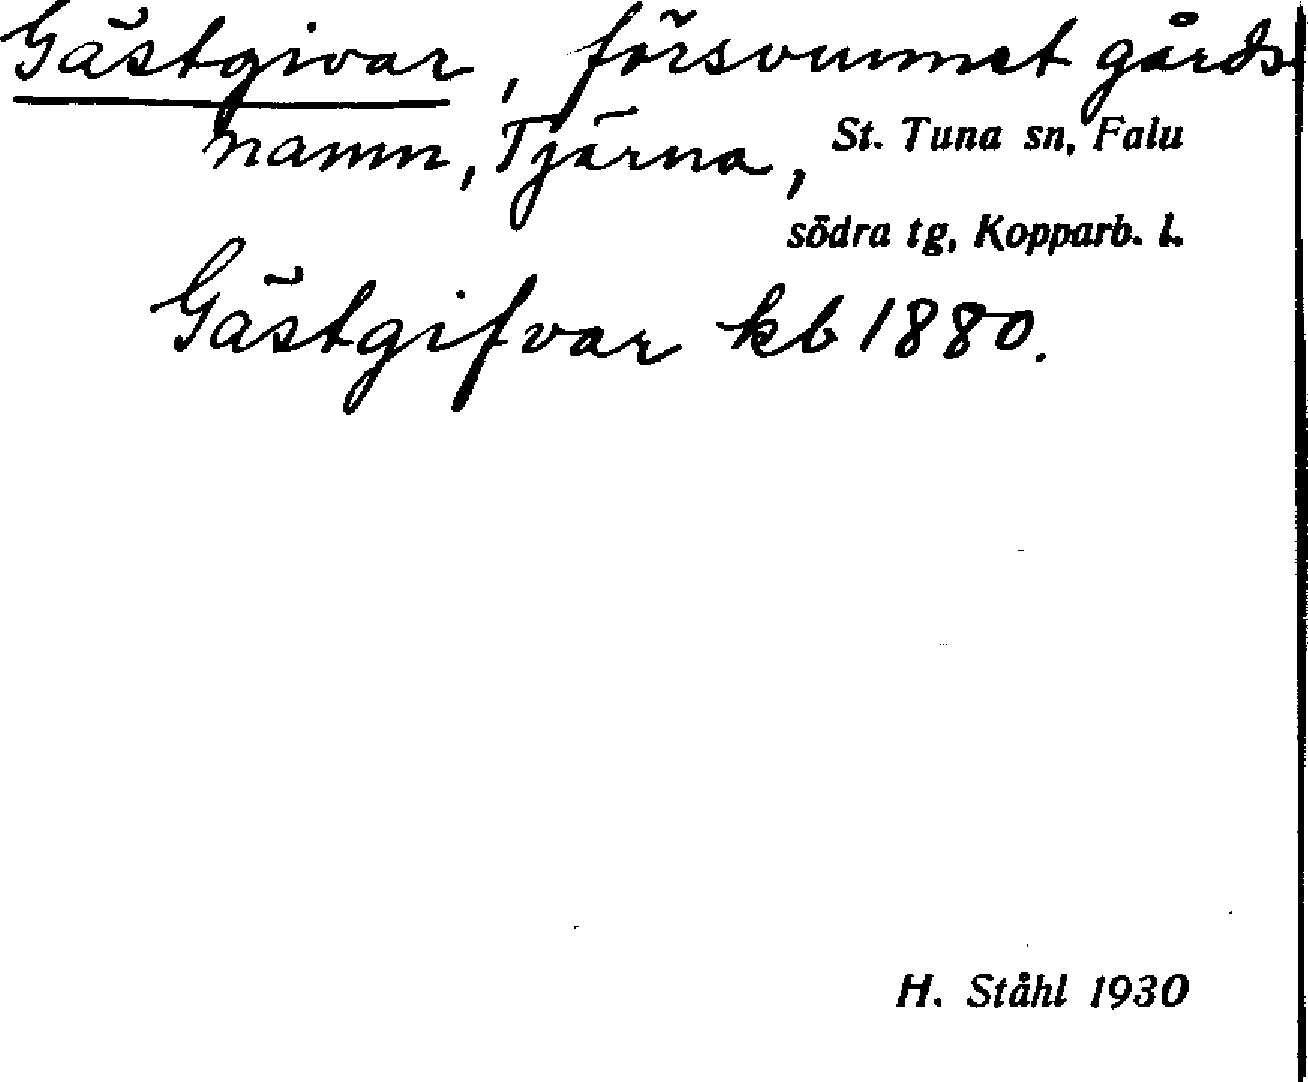 Gästgivar, försvunnet gårds
namn, Tjärna, St. Tuna sn, Falu
södra tg, Kopparb. l.
Gästgifvar kb 1880.
H. Ståhl 1930